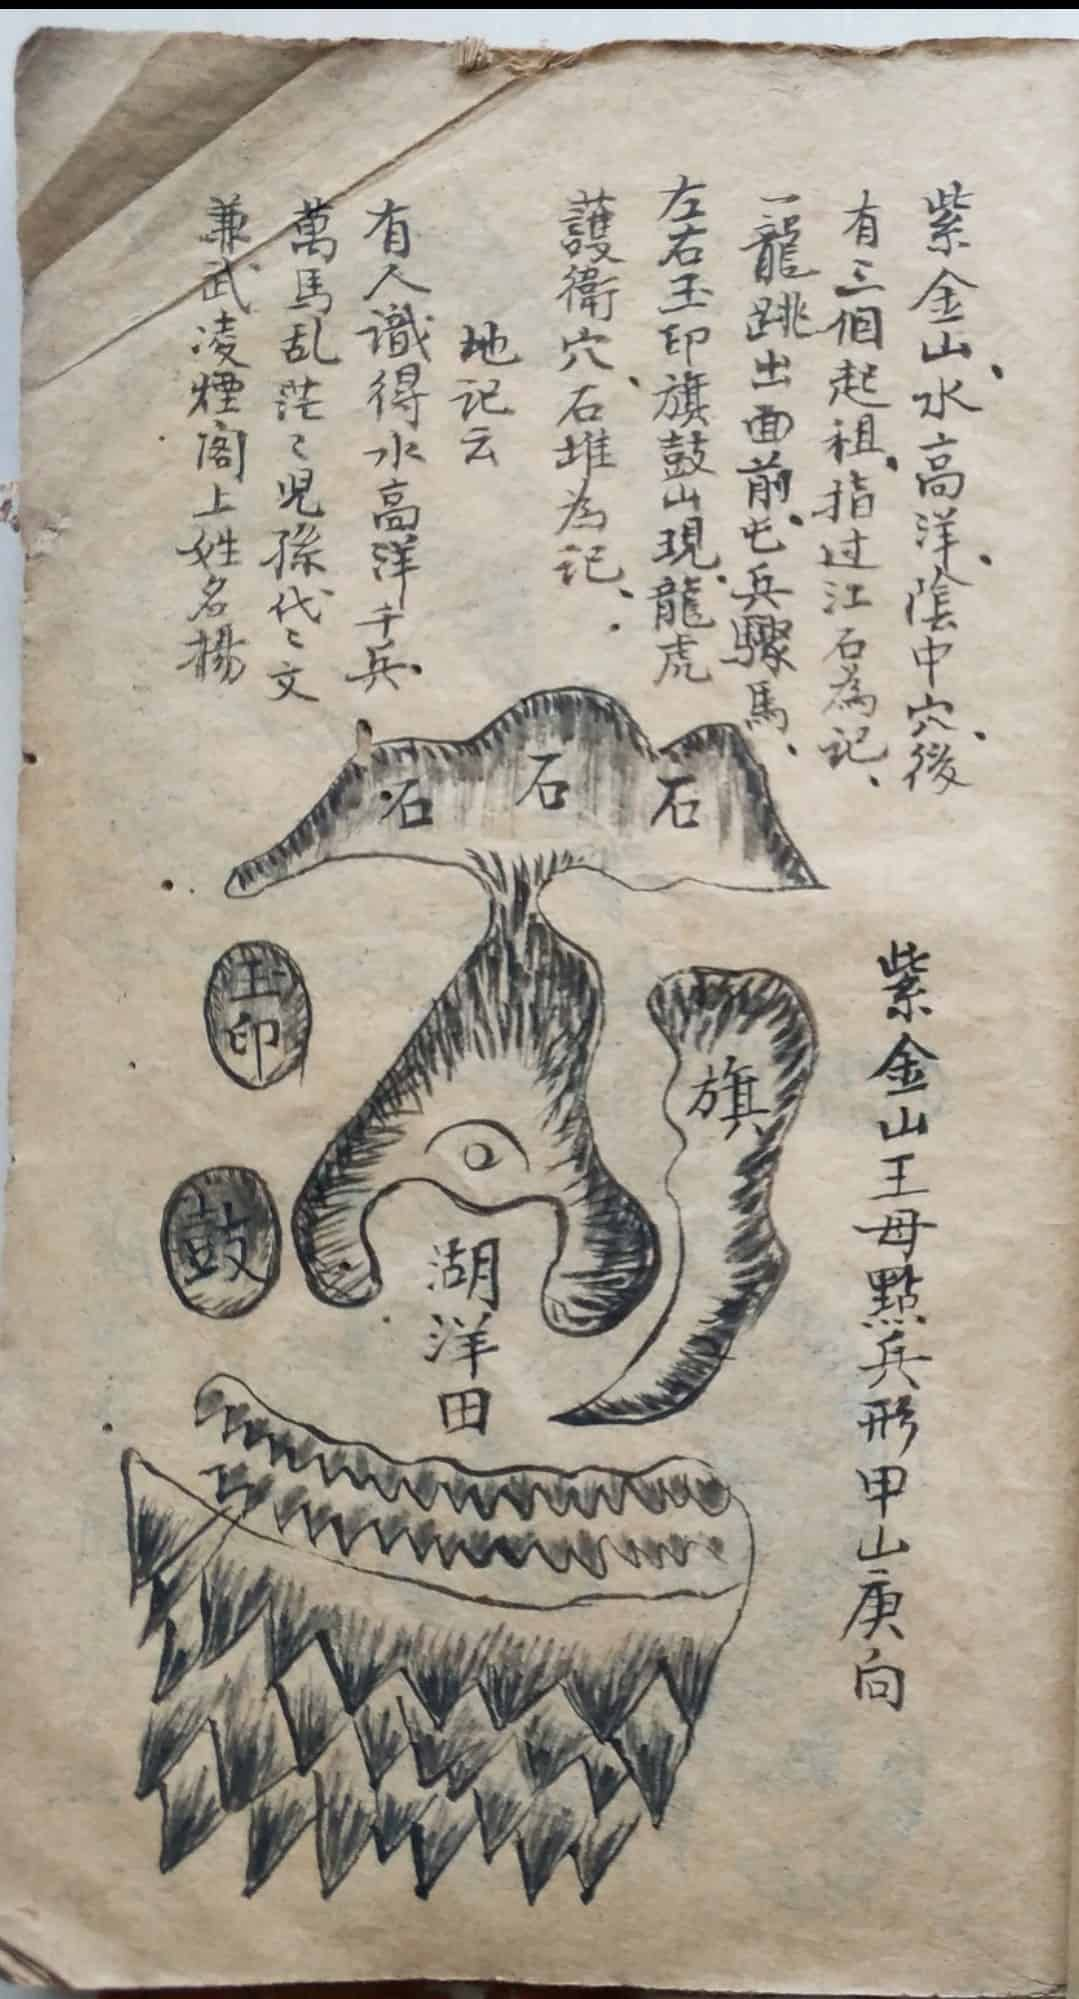 紫金山、水高洋、陰中穴、後
有三個起祖、指过江石為記、
一龍跳出面前、屯兵驟馬、
左右玉印旗鼓山現、龍虎
護衛穴、石堆為記、
地記云
有人識得水高洋千兵
萬馬乱茫〻児孫代〻文
兼武凌煙阁上姓名揚
石
石
石
紫金山王母點兵形甲山庚向
旗
玉印
鼓
湖洋田